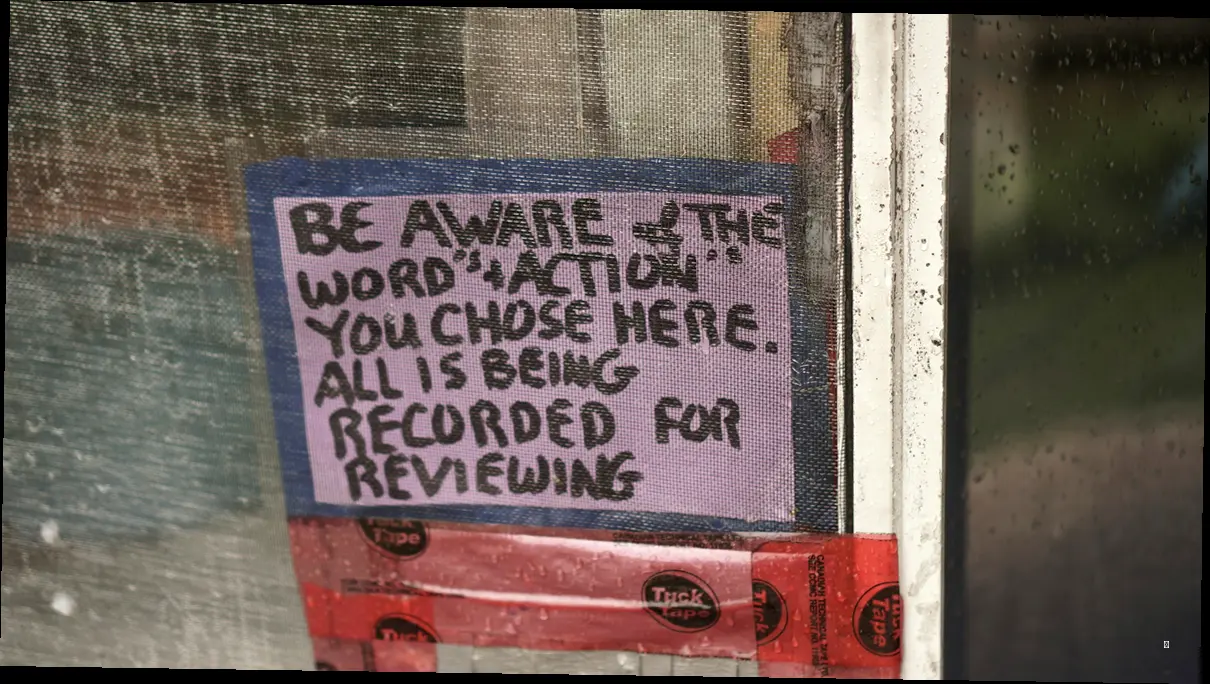 BE AWARE of THE
WORD "+ ACTION"
YOU CHOSE HERE.
ALL IS BEING
RECORDED FOR
REVIEWING
Tuck
Tape
Tuck
Tape
Tuck
Tuck
Tuck
Tape